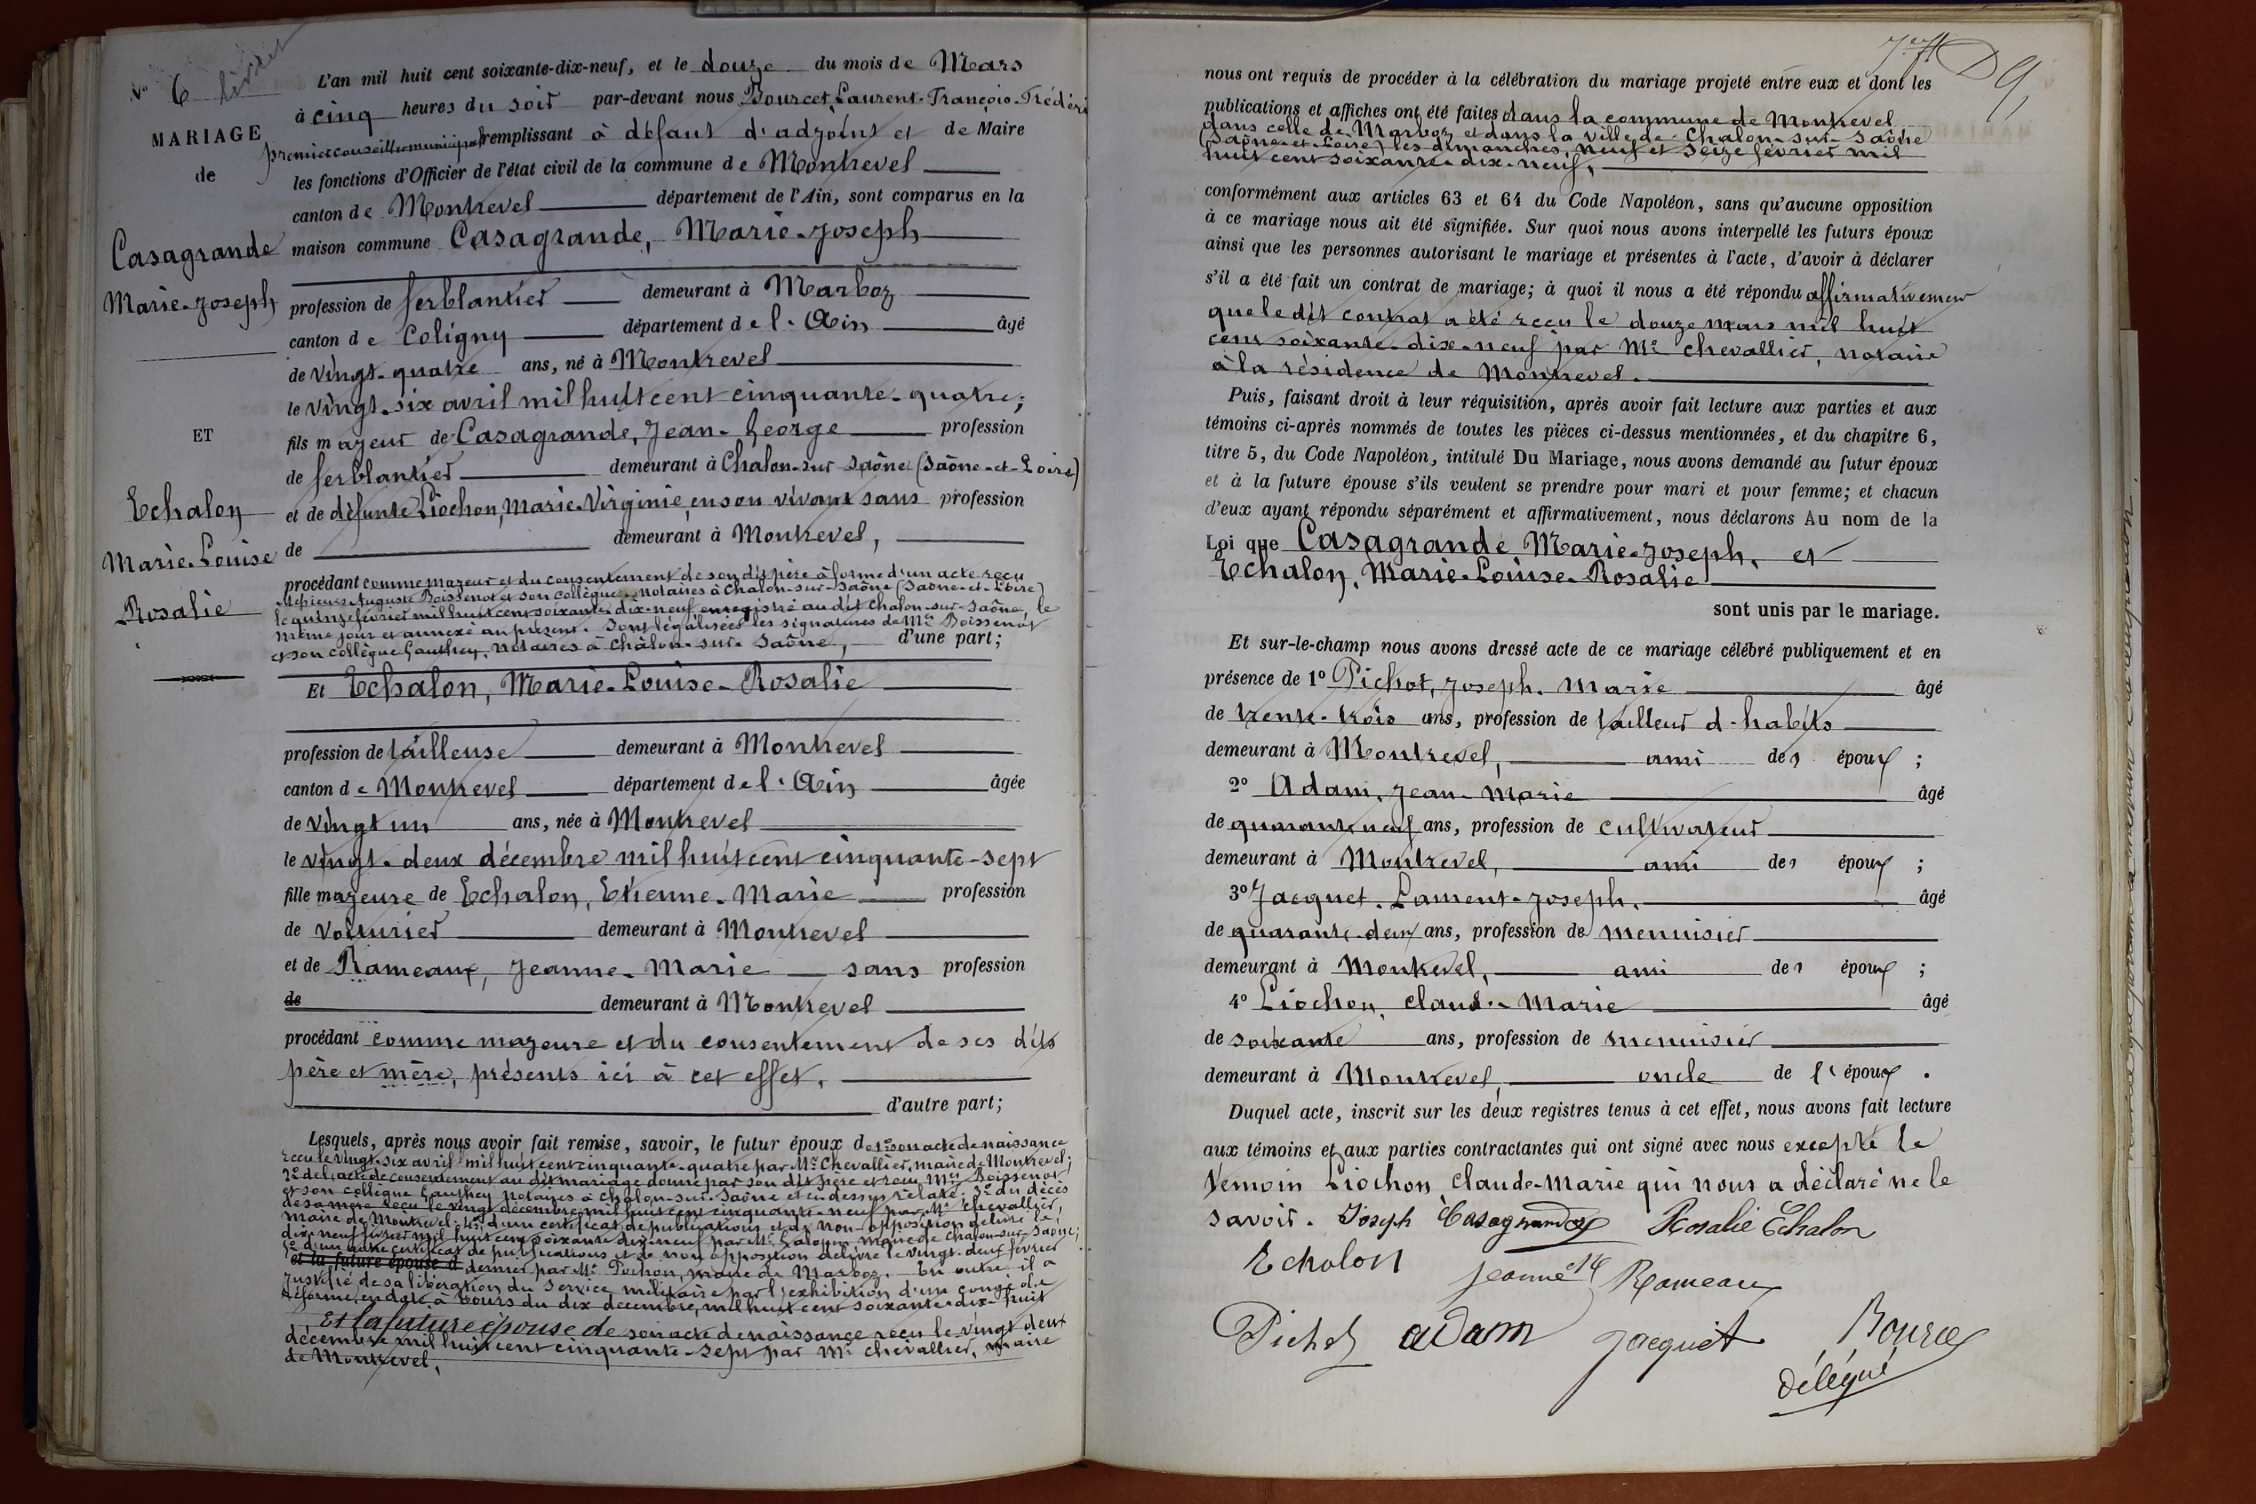 No 6
MARIAGE
de
Casagrande
Marie-Joseph
ET
Echalon
Marie-Louise
Rosalie
L'an mil huit cent soixante-dix-neuf, et le douze du mois de Mars
à cinq heures du soir par-devant nous Bourcet, Laurent-François-Frédéric
premier conseiller municipal remplissant à défaut d'adjoint et de Maire
les fonctions d'Officier de l'état civil de la commune de Montrevel
canton de Montrevel département de l'Ain, sont comparus en la
maison commune Casagrande, Marie-Joseph
profession de ferblantier demeurant à Marboz
canton de Coligny département de l'Ain âgé
de vingt-quatre ans, né à Montrevel
le vingt-six avril mil huit cent cinquante-quatre;
fils majeur de Casagrande, Jean-George profession
de ferblantier demeurant à Chalon-sur-Saône (Saône-et-Loire)
et de défunte Liochon, Marie-Virginie, en son vivant sans profession
de demeurant à Montrevel,
procédant comme majeur et du consentement de son dit père à forme d'un acte reçu
Messieurs Auguste Boissenot et son collègue, notaires à Chalon-sur-Saône (Saône-et-Loire)
le quinze février mil huit cent soixante-dix-neuf enregistré au dit Chalon-sur-Saône, le
même jour et annexé au présent. Sont légalisées les signatures de Me Boissenot
et son collègue Gauthey, notaires à Châlon-sur-Saône, d'une part;
Et Echalon, Marie-Louise-Rosalie
profession de tailleuse demeurant à Montrevel
canton de Montrevel département de l'Ain âgée
de vingt un ans, née à Montrevel
le vingt-deux décembre mil huit cent cinquante-sept
fille majeure de Echalon, Etienne-Marie profession
de voiturier demeurant à Montrevel
et de Rameaux, Jeanne-Marie sans profession
de demeurant à Montrevel
procédant comme majeure et du consentement de ses dits
père et mère, présents ici à cet effet,
d'autre part;
Lesquels, après nous avoir fait remise, savoir, le futur époux de 1° son acte de naissance
reçu le vingt-six avril mil huit cent cinquante-quatre par Mr Chevallier, maire de Montrevel;
2° de l'acte de consentement au dit mariage donné par son dit père et reçu Me Boissenot
et son collègue Gauthey notaires à Chalon-sur-Saône et ci-dessus relaté; 3° du décès
de sa mère reçu le vingt décembre mil huit cent cinquante-neuf par Mr Chevallier,
maire de Montrevel; 4° d'un certificat de publications et de non-opposition délivré le
dix-neuf février mil huit cent soixante dix-neuf par Mr maire de Chalon-sur-Saône;
5° d'un autre certificat de publications et de non opposition délivré le vingt-deux février
et la future épouse d dernier par Mr Pochon, maire de Marboz. En outre il a
justifié de sa libération du service militaire par l'exhibition d'un congé de
réforme, en date, à Tours du dix décembre, mil huit cent soixante-dix-huit
Et la future épouse de son acte de naissance reçu le vingt deux
décembre mil huit cent cinquante-sept par Mr Chevallier, maire
de Montrevel,
nous ont requis de procéder à la célébration du mariage projeté entre eux et dont les
publications et affiches ont été faites dans la commune de Montrevel
dans celle de Marboz et dans la ville de Chalon-sur-Saône
(Saône-et-Loire) les dimanches, neuf et seize février mil
huit cent soixante-dix-neuf,
conformément aux articles 63 et 64 du Code Napoléon, sans qu'aucune opposition
à ce mariage nous ait été signifiée. Sur quoi nous avons interpellé les futurs époux
ainsi que les personnes autorisant le mariage et présentes à l'acte, d'avoir à déclarer
s'il a été fait un contrat de mariage; à quoi il nous a été répondu affirmativement
que le dit contrat a été reçu le douze mars mil huit
cent soixante-dix-neuf par Me Chevallier, notaire
à la résidence de Montrevel.
Puis, faisant droit à leur réquisition, après avoir fait lecture aux parties et aux
témoins ci-après nommés de toutes les pièces ci-dessus mentionnées, et du chapitre 6,
titre 5, du Code Napoléon, intitulé Du Mariage, nous avons demandé au futur époux
et à la future épouse s'ils veulent se prendre pour mari et pour femme; et chacun
d'eux ayant répondu séparément et affirmativement, nous déclarons Au nom de la
Loi que Casagrande Marie-Joseph, et
Echalon, Marie-Louise-Rosalie
sont unis par le mariage.
Et sur-le-champ nous avons dressé acte de ce mariage célébré publiquement et en
présence de 1° Pichot, Joseph-Marie âgé
de trente-trois ans, profession de tailleur d'habits
demeurant à Montrevel, ami des époux;
2° Adam, Jean-Marie âgé
de quarante neuf ans, profession de cultivateur
demeurant à Montrevel, ami des époux;
3° Jacquet, Laurent-Joseph, âgé
de quarante-deux ans, profession de menuisier
demeurant à Montrevel, ami des époux;
4° Liochon, Claude-Marie âgé
de soixante ans, profession de menuisier
demeurant à Montrevel, oncle de l'époux.
Duquel acte, inscrit sur les deux registres tenus à cet effet, nous avons fait lecture
aux témoins et aux parties contractantes qui ont signé avec nous excepté le
témoin Liochon Claude-Marie qui nous a déclaré ne le
savoir. Joseph Casagrande Rosalie Echalon
Echalon Jeanne Mie Rameau
Pichot Adam Jacquet Bource
délégué